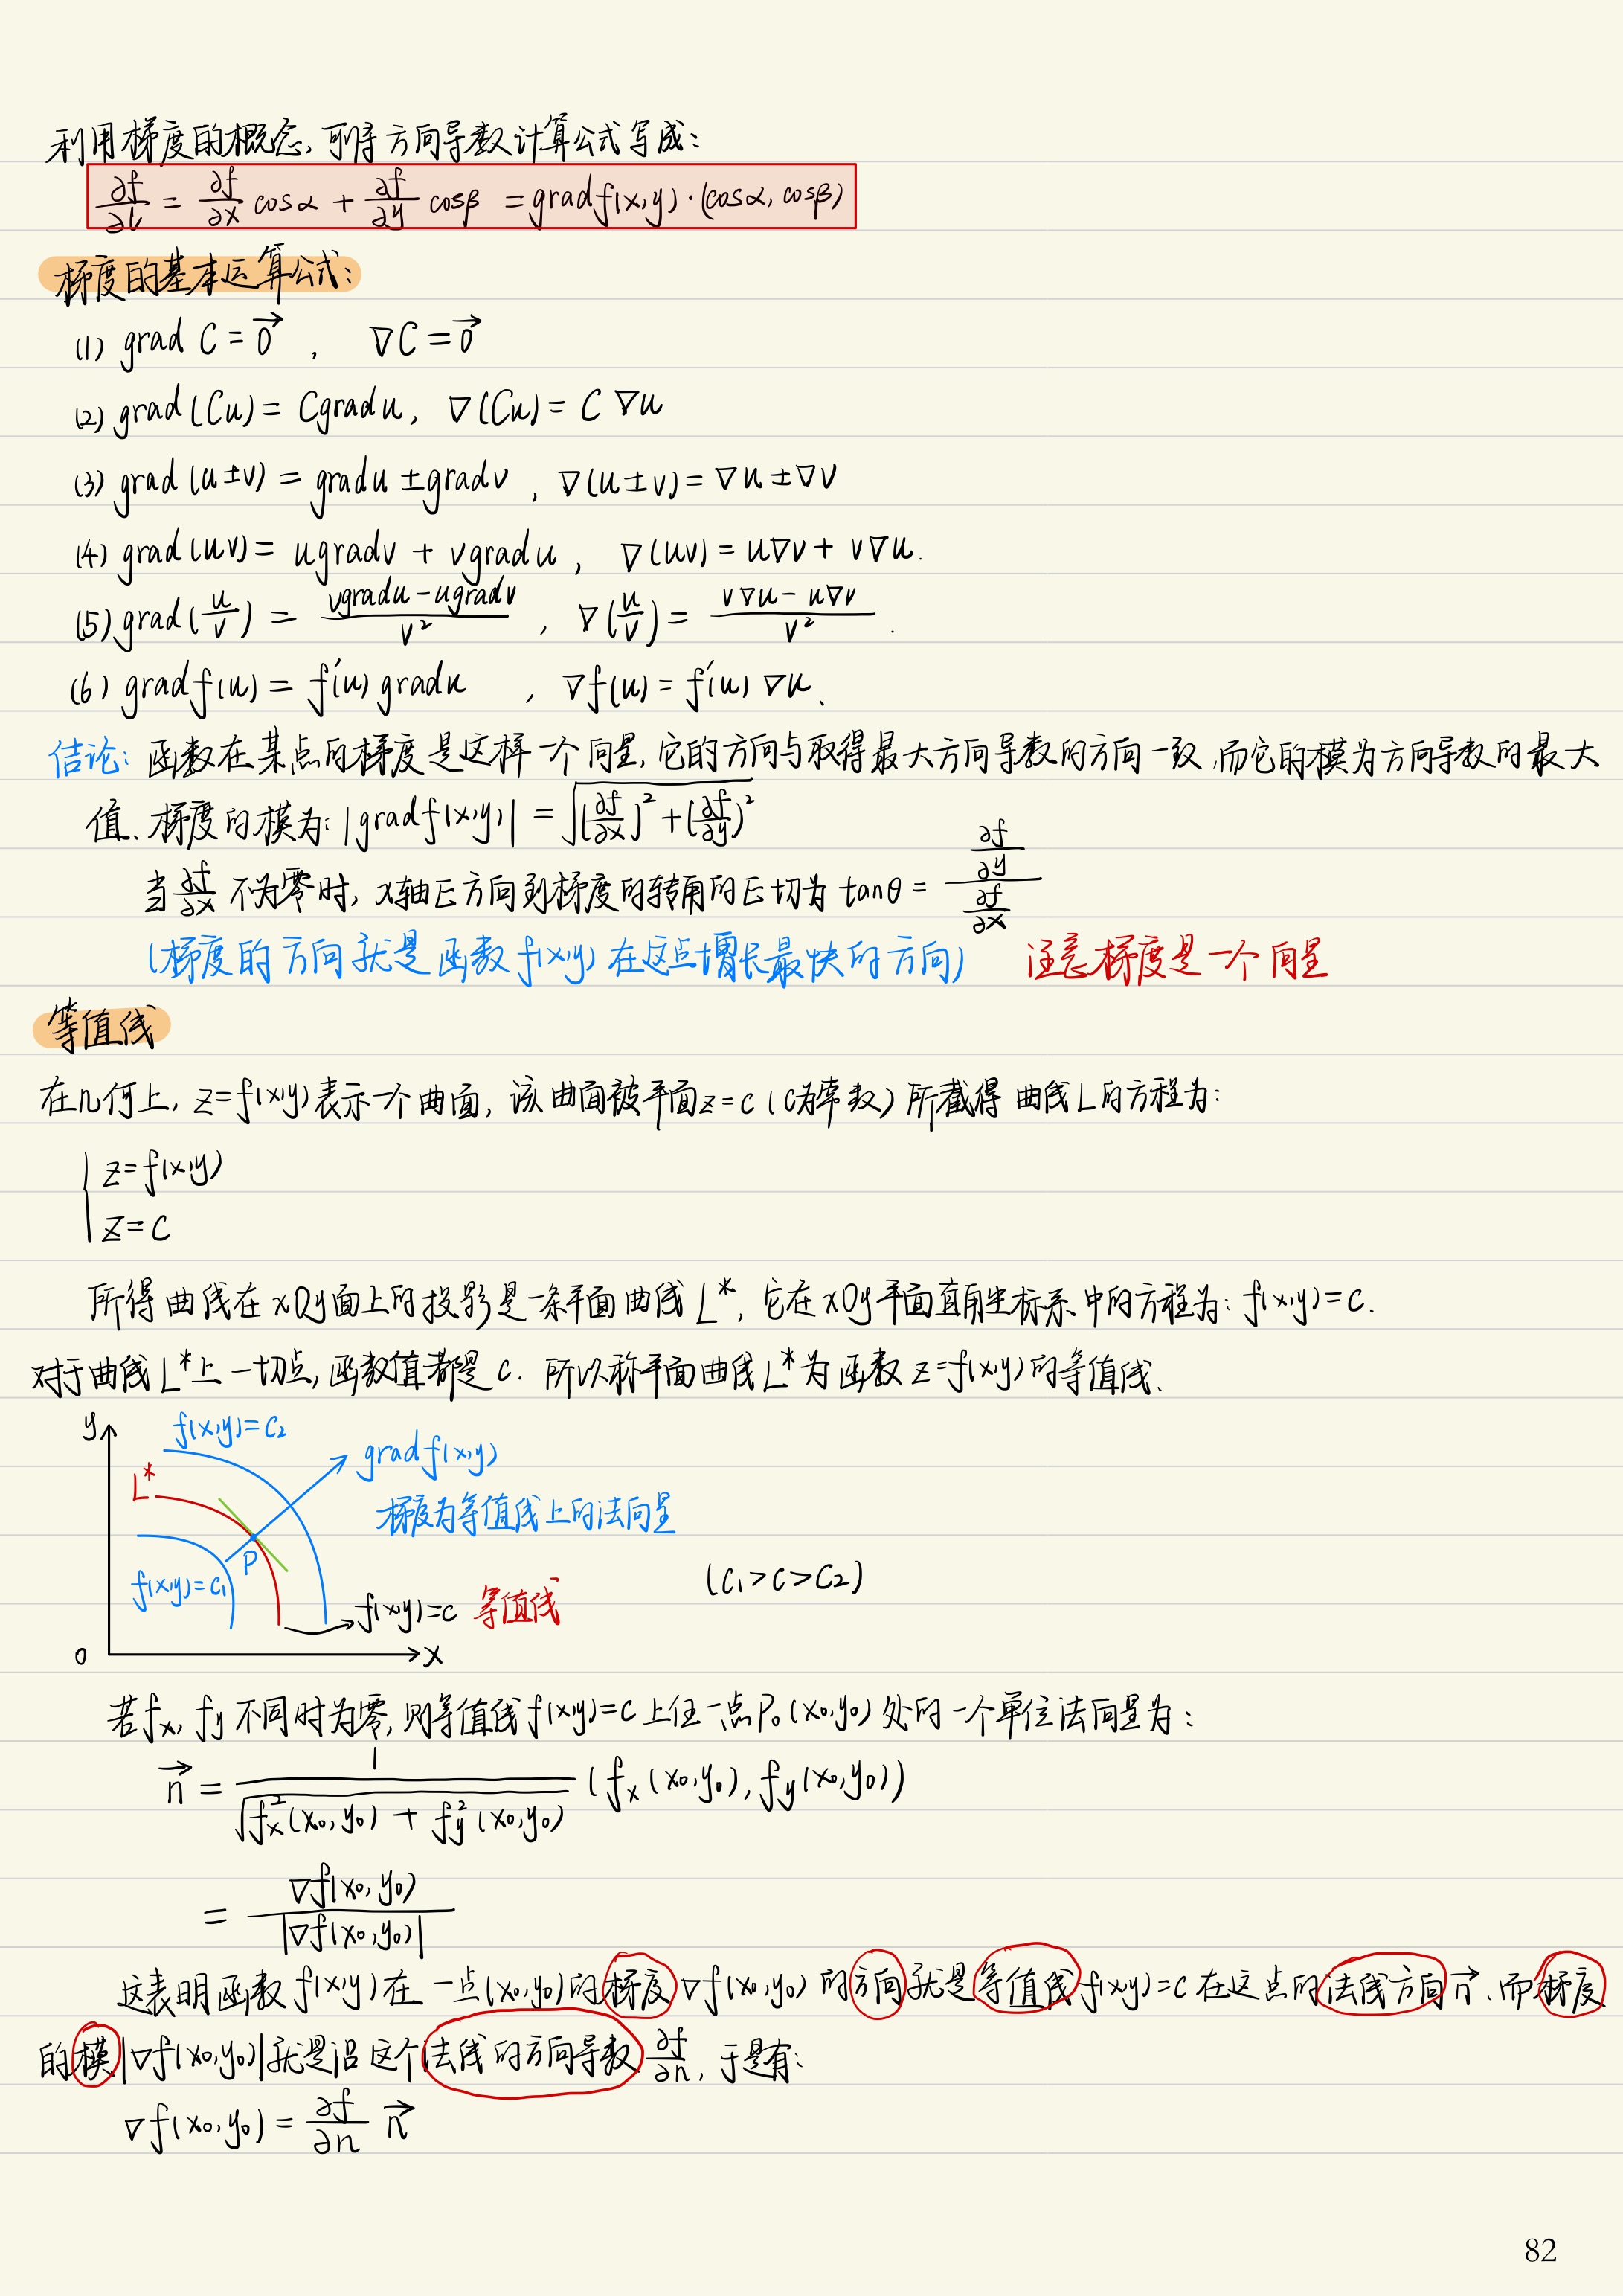 利用梯度的概念, 可得方向导数计算公式写成:
∂f/∂l = ∂f/∂x cosα + ∂f/∂y cosβ = gradf(x,y)·(cosα, cosβ)
梯度的基本运算公式:
(1) grad C = 0⃗ , ∇C = 0⃗
(2) grad(Cu) = Cgradu, ∇(Cu) = C∇u
(3) grad(u±v) = gradu ± gradv , ∇(u±v) = ∇u ± ∇v
(4) grad(uv) = ugradv + vgradu , ∇(uv) = u∇v + v∇u.
(5) grad(u/v) = (vgradu - ugradv)/v² , ∇(u/v) = (v∇u - u∇v)/v² .
(6) gradf(u) = f′(u)gradu , ∇f(u) = f′(u)∇u、
结论: 函数在某点的梯度是这样一个向量, 它的方向与取得最大方向导数的方向一致,而它的模为方向导数的最大
值、梯度的模为: |gradf(x,y)| = √((∂f/∂x)² + (∂f/∂y)²)
当 ∂f/∂x 不为零时, x轴正方向到梯度的转角的正切为 tanθ = (∂f/∂y)/(∂f/∂x)
(梯度的方向就是函数f(x,y)在这点增长最快的方向) 注意梯度是一个向量
等值线
在几何上, z=f(x,y)表示一个曲面, 该曲面被平面z=c(c为常数)所截得曲线L的方程为:
{ z=f(x,y)
z=c
所得曲线在xOy面上的投影是一条平面曲线L*, 它在xOy平面直角坐标系中的方程为: f(x,y)=c.
对于曲线L*上一切点, 函数值都是c. 所以称平面曲线L*为函数z=f(x,y)的等值线、
y
f(x,y)=c₂
gradf(x,y)
L*
梯度为等值线上的法向量
P
f(x,y)=c₁
(c₁>c>c₂)
f(x,y)=c 等值线
0
x
若fx, fy不同时为零, 则等值线f(x,y)=c上任一点P₀(x₀,y₀)处的一个单位法向量为:
n⃗ = 1/√(fx²(x₀,y₀) + fy²(x₀,y₀)) (fx(x₀,y₀), fy(x₀,y₀))
= ∇f(x₀,y₀)/|∇f(x₀,y₀)|
这表明函数f(x,y)在一点(x₀,y₀)的梯度∇f(x₀,y₀)的方向就是等值线f(x,y)=c在这点的法线方向n⃗、而梯度
的模|∇f(x₀,y₀)|就是沿这个法线的方向导数 ∂f/∂n, 于是有:
∇f(x₀,y₀) = ∂f/∂n n⃗
82